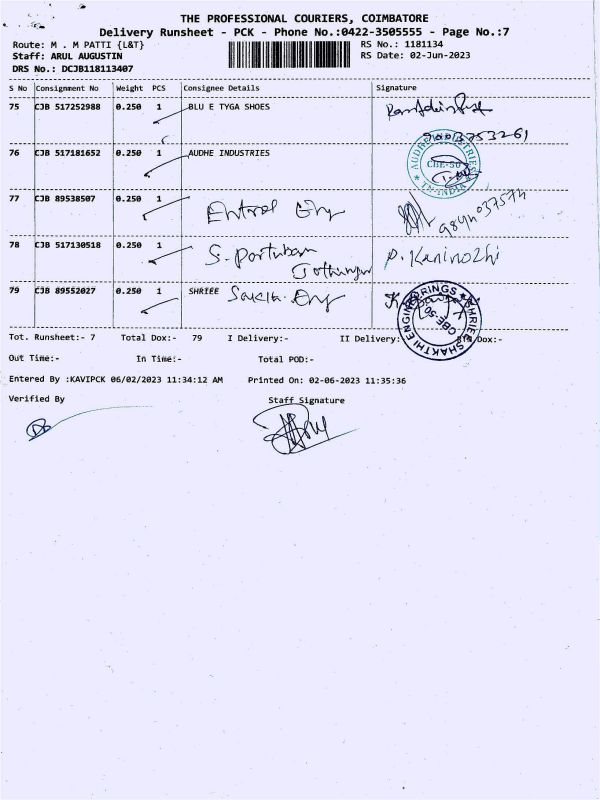 THE PROFESSIONAL COURIERS, COIMBATORE
Delivery Runsheet - PCK - Phone No.:0422-3505555 - Page No.:7
Route: M . M PATTI {L&T} RS No.: 1181134
Staff: ARUL AUGUSTIN RS Date: 02-Jun-2023
DRS No.: DCJB118113407
S No Consignment No Weight PCS Consignee Details Signature
75 CJB 517252988 0.250 1 BLU E TYGA SHOES
76 CJB 517181652 0.250 1 AUDHE INDUSTRIES
AUDHE INDUSTRIES
CBE-50
INDIA
77 CJB 89538507 0.250 1
78 CJB 517130518 0.250 1 P. Kaninozhi
79 CJB 89552027 0.250 1 SHRIEE
SHRIEE SHAKTHI ENGINEERINGS
CBE-50
Tot. Runsheet:- 7 Total Dox:- 79 I Delivery:- II Delivery: Dox:-
Out Time:- In Time:- Total POD:-
Entered By :KAVIPCK 06/02/2023 11:34:12 AM Printed On: 02-06-2023 11:35:36
Verified By Staff Signature